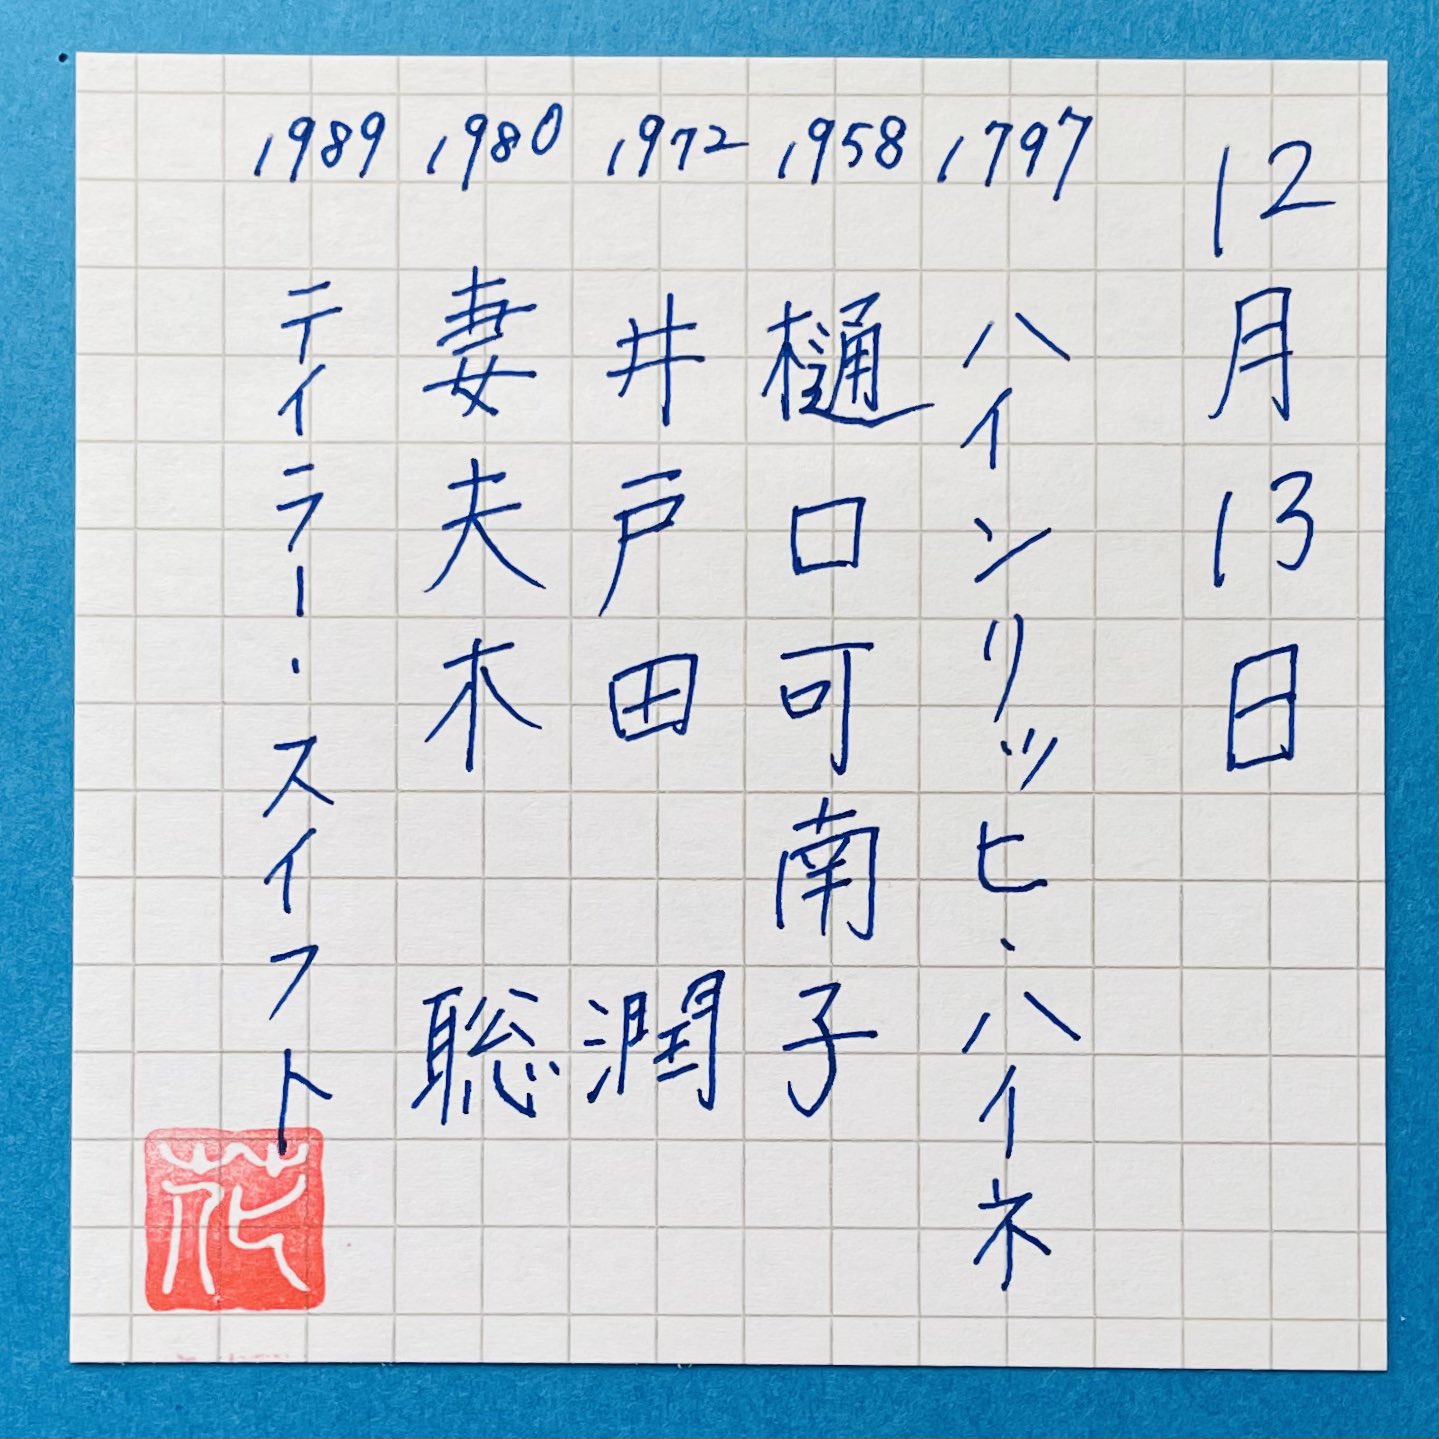 12月13日
1797 ハインリッヒ・ハイネ
1958 樋口可南子
1972 井戸田 潤
1980 妻夫木 聡
1989 テイラー・スイフト
花